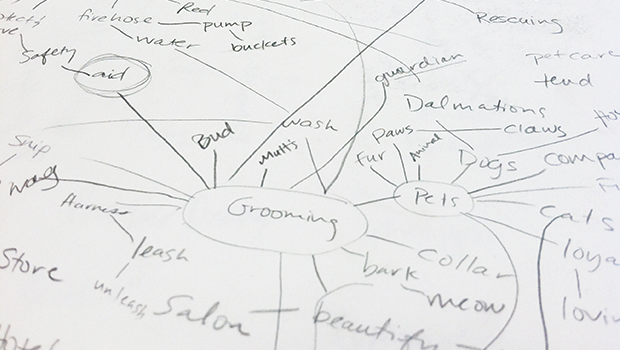 Red
firehose
pump
Rescuing
buckets
water
Safety
guardian
petcare
tend
aid
Dalmations
wash
Bud
Mutts
paws
claws
Snip
Fur
Animal
Dogs
compa
Harness
Grooming
Pets
Cats
leash
Collar
loya
Store
bark
unleash
meow
Salon
beautify
lovin